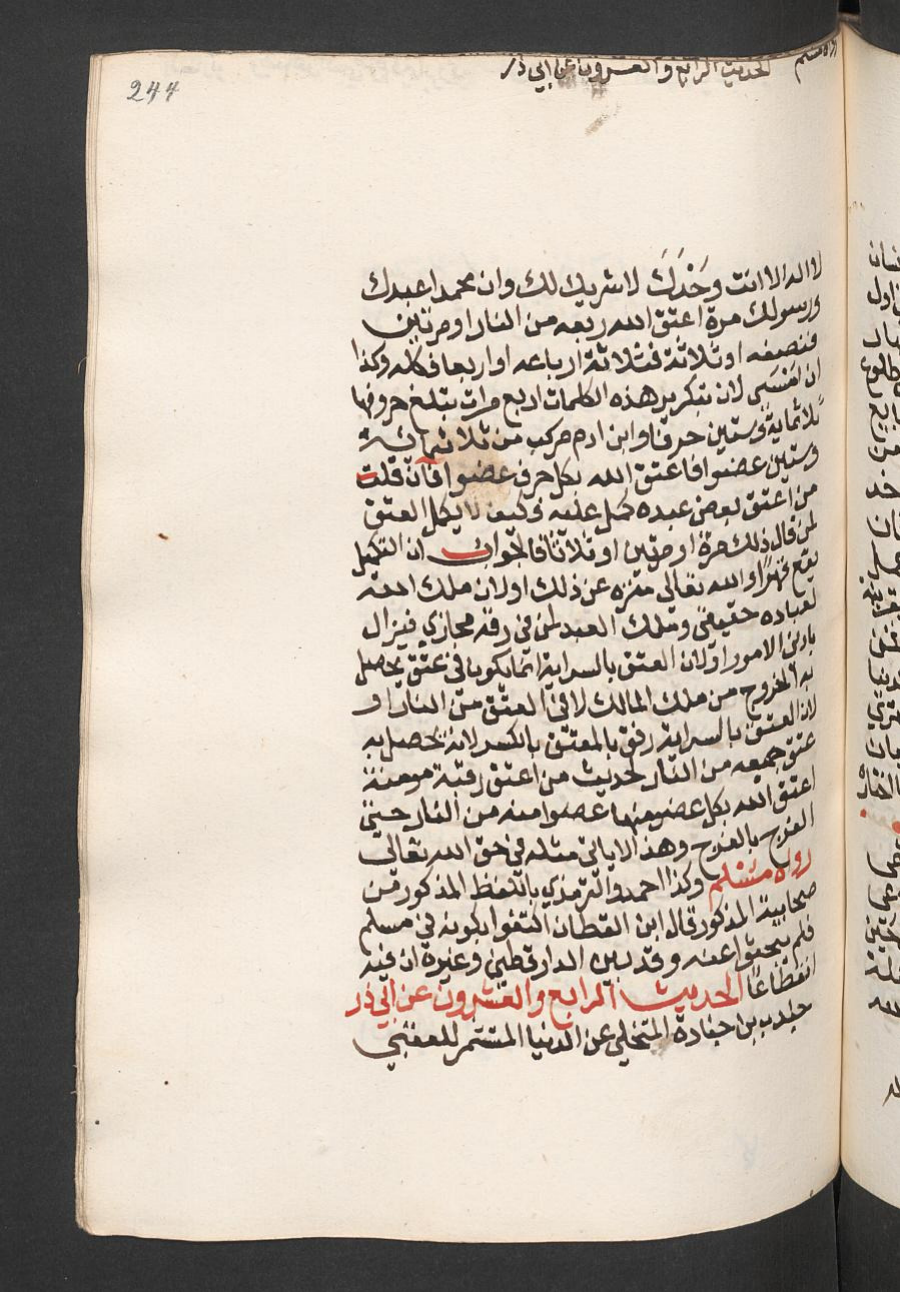 رواه مسلم
الحديث الرابع والعشرون عن ابي ذر
244
لا اله الا انت وحدك لا شريك لك وان محمدا عبدك
ورسولك مرة اعتق الله ربعه من النار او مرتين
فنصفه او ثلاثة فثلاثة ارباعه او اربعا فكله وكذا
لان بتكرير هذه الكلمات اربع مرات تبلغ حروفها
ثلاثماية وستين حرفا وابن ادم مركب من ثلاثمائة
وستين عضوا فاعتق الله بكل حرف عضوا فان قلت
من اعتق بعض عبده كمل عليه فكيف لا يكمل العتق
لمن قال ذلك مرة او مرتين او ثلاثا فالجواب ان التكميل
يقع قهرا والله تعالى منزه عن ذلك او لان ملك الله
لعباده حقيقي وملك العبد لمن في رقه مجازي فيزال
بادنى الامور او لان العتق بالسراية انما يكون في عتق يحصل
به الخروج من ملك المالك لا في العتق من النار او
لان العتق بالسراية رفق بالمعتق بالكسر لانه يحصل به
عتق جميعه من النار لحديث من اعتق رقبة مومنة
اعتق الله بكل عضو منها عضوا منه من النار حتى
الفرج بالفرج وهذا لا ياتي مثله في حق الله تعالى
رواه مسلم وكذا احمد والترمذي باللفظ المذكور من
صحابيه المذكور قال ابن القطان اكتفوا بكونه في مسلم
فلم يبحثوا عنه وقد بين الدارقطني وغيره ان فيه
انقطاعا الحديث الرابع والعشرون عن ابي ذر
جندب بن جنادة المتخلي عن الدنيا المتشمر للعقبى